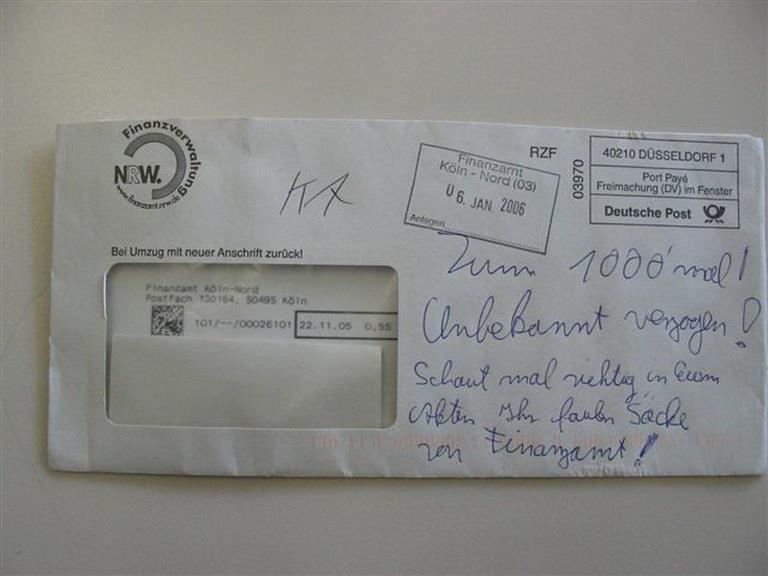 Finanzverwaltung
NRW.
www.finanzamt.nrw.de
KA
RZF
03970
Finanzamt
Köln - Nord (03)
06. JAN. 2006
Anlagen
40210 DÜSSELDORF 1
Port Payé
Freimachung (DV) im Fenster
Deutsche Post
Bei Umzug mit neuer Anschrift zurück!
Finanzamt Köln-Nord
Postfach 130164, 50495 Köln
101/--/00026101 22.11.05 0,55
Zum 1000'mal!
Unbekannt verzogen!
Schaut mal richtig in Euern
Akten Ihr faulen Säcke
von Finanzamt!